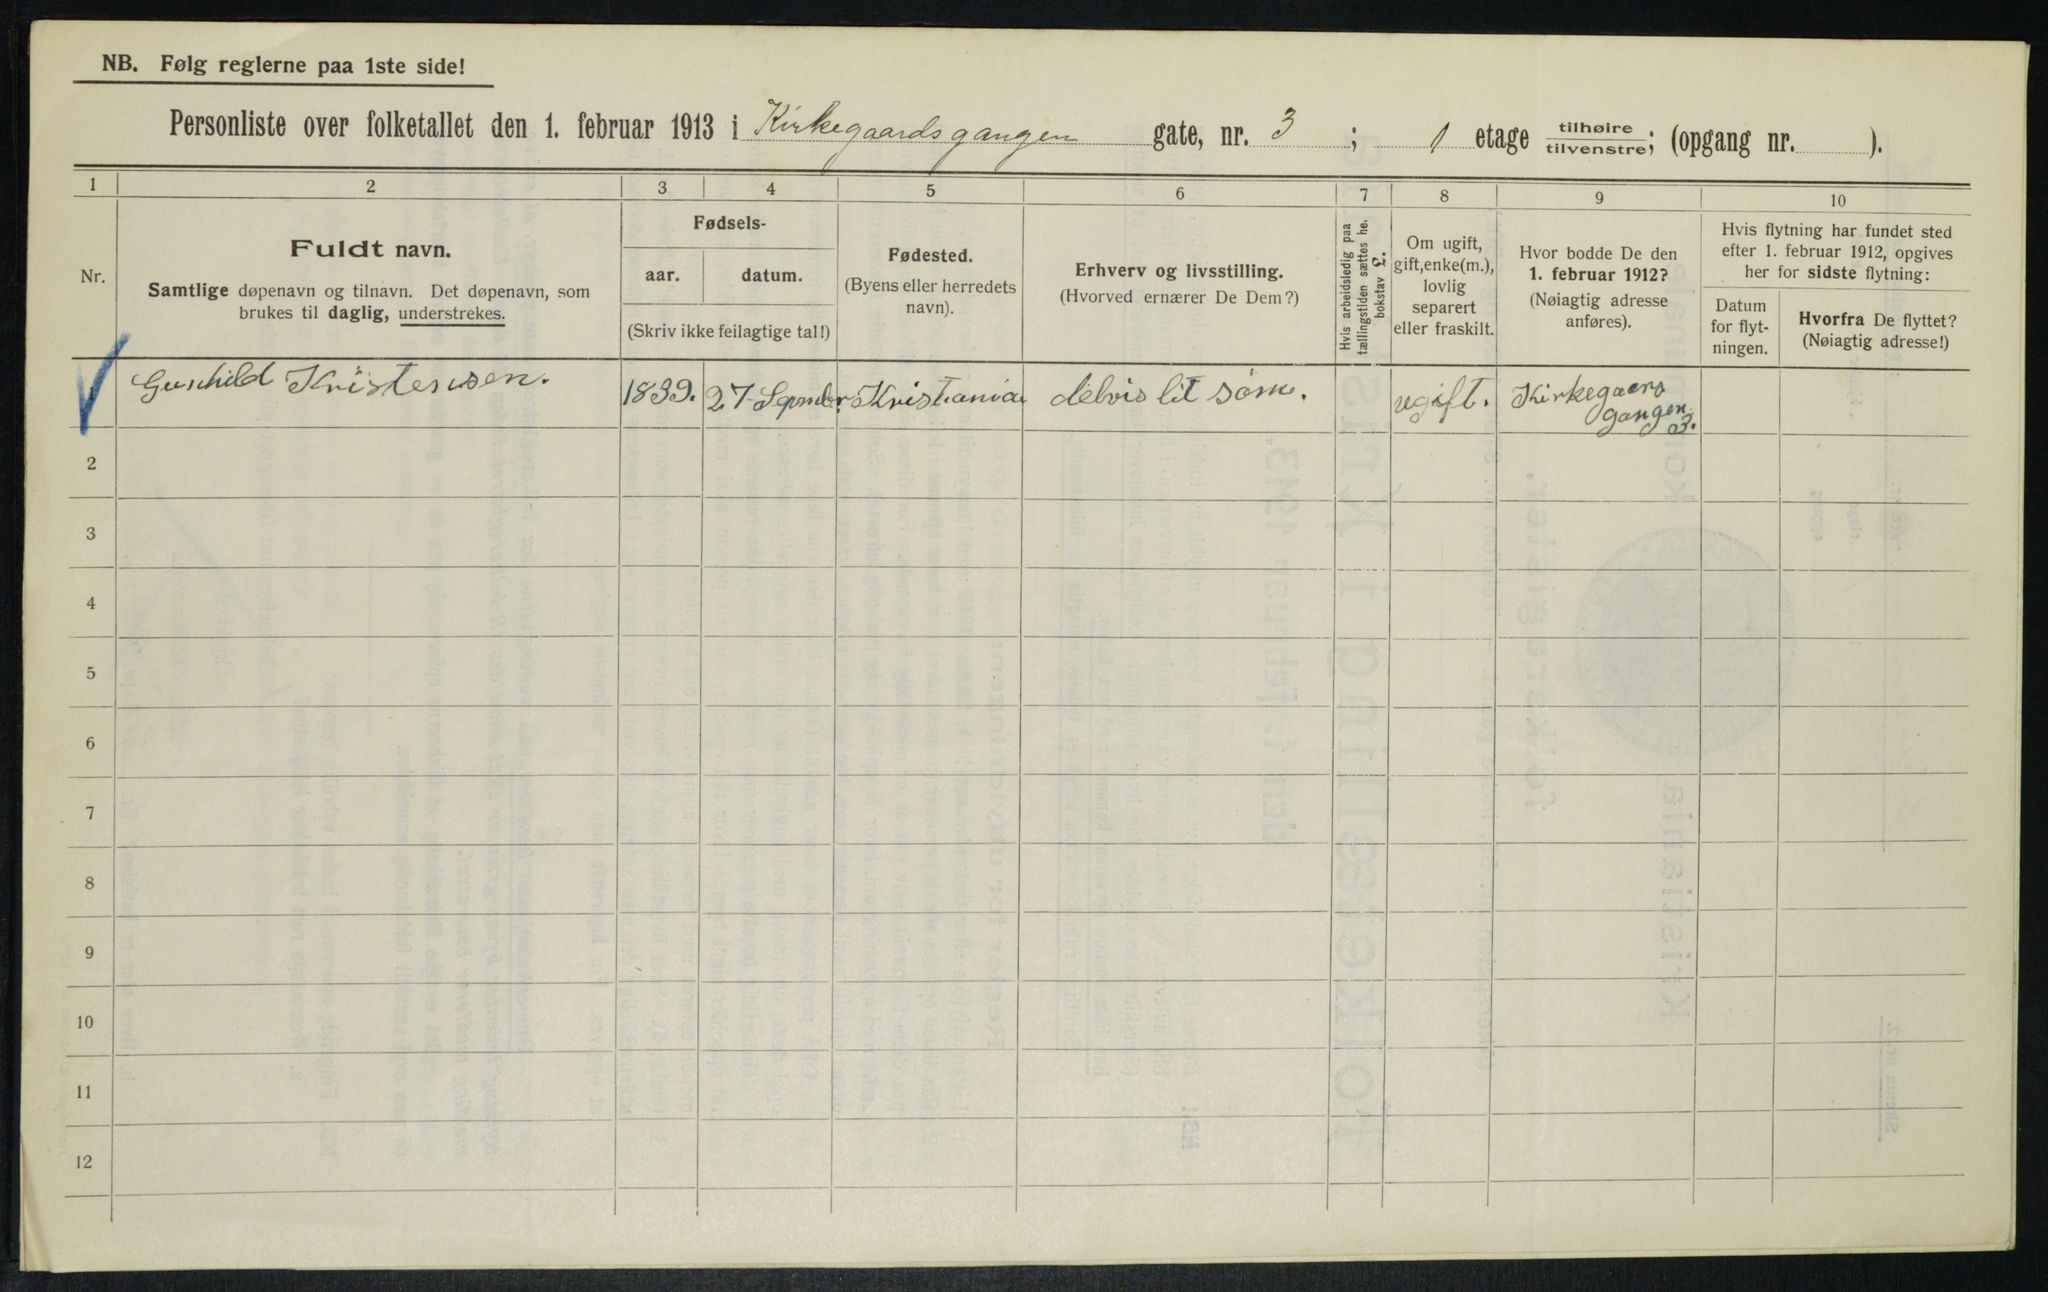 NB. Følg reglerne paa 1ste side!
Personliste over folketallet den 1. februar 1913 i Kirkegaardsgangen gate, nr. 3 ; 1 etage tilhøire tilvenstre; (opgang nr. ).
1 2 3 4 5 6 7 8 9 10
Nr.
Fuldt navn.
Samtlige døpenavn og tilnavn. Det døpenavn, som
brukes til daglig, understrekes.
Fødsels-
aar. datum.
(Skriv ikke feilagtige tal!)
Fødested.
(Byens eller herredets
navn).
Erhverv og livsstilling.
(Hvorved ernærer De Dem?)
Hvis arbeidsledig paa
tællingstiden sættes he.
bokstav L.
Om ugift,
gift, enke(m.),
lovlig
separert
eller fraskilt.
Hvor bodde De den
1. februar 1912?
(Nøiagtig adresse
anføres).
Hvis flytning har fundet sted
efter 1. februar 1912, opgives
her for sidste flytning:
Datum
for flyt-
ningen.
Hvorfra De flyttet?
(Nøiagtig adresse!)
Kristensen. 1839. 27 Kristania delvis lit søm. ugift. Kirkegaers
gangen
3.
2
3
4
5
6
7
8
9
10
11
12